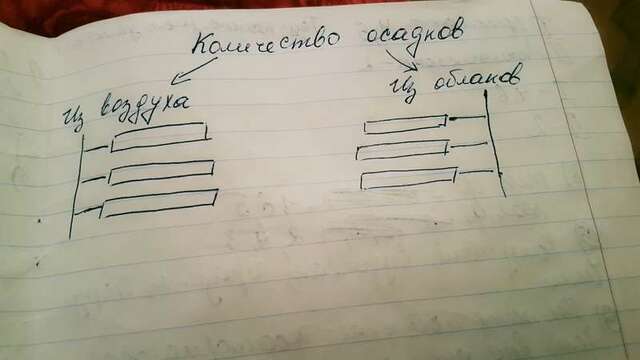 Количество осадков
Из воздуха
Из облаков